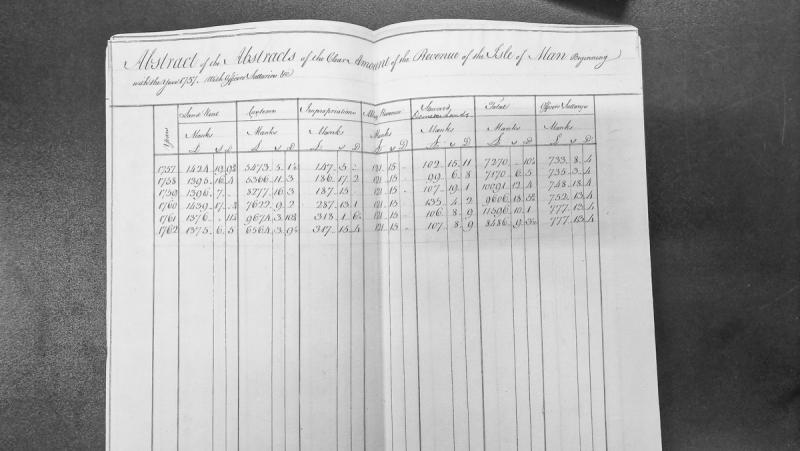 Abstract of the Abstracts of the Clear Amount of the Revenue of the Isle of Man Beginning
with the Year 1757. With Officers Sallaries &c
Years Land Rent Customs Impropriations Abbey Revenue Total Officers Sallarys
Manks Manks Manks Manks Manks Manks Manks
£ s D £ s D £ s D £ s D £ s D £ s D £ s D
1757 1424 19 5473 5 147 5 121 15 102 15 11 7270 733 8 4
1758 1395 16 4 5366 11 3 186 17 2 121 15 99 6 8 7170 6 5 735 3 4
1759 1396 7 8277 16 3 187 15 121 15 107 19 1 10091 12 4 748 18 4
1760 1439 17 7622 9 2 287 13 1 121 15 135 4 2 9606 18 752 13 4
1761 1376 9674 3 318 1 121 15 106 8 9 11596 10 1 777 13 4
1762 1375 6 5 6564 3 317 15 4 121 15 107 8 9 8486 9 777 13 4